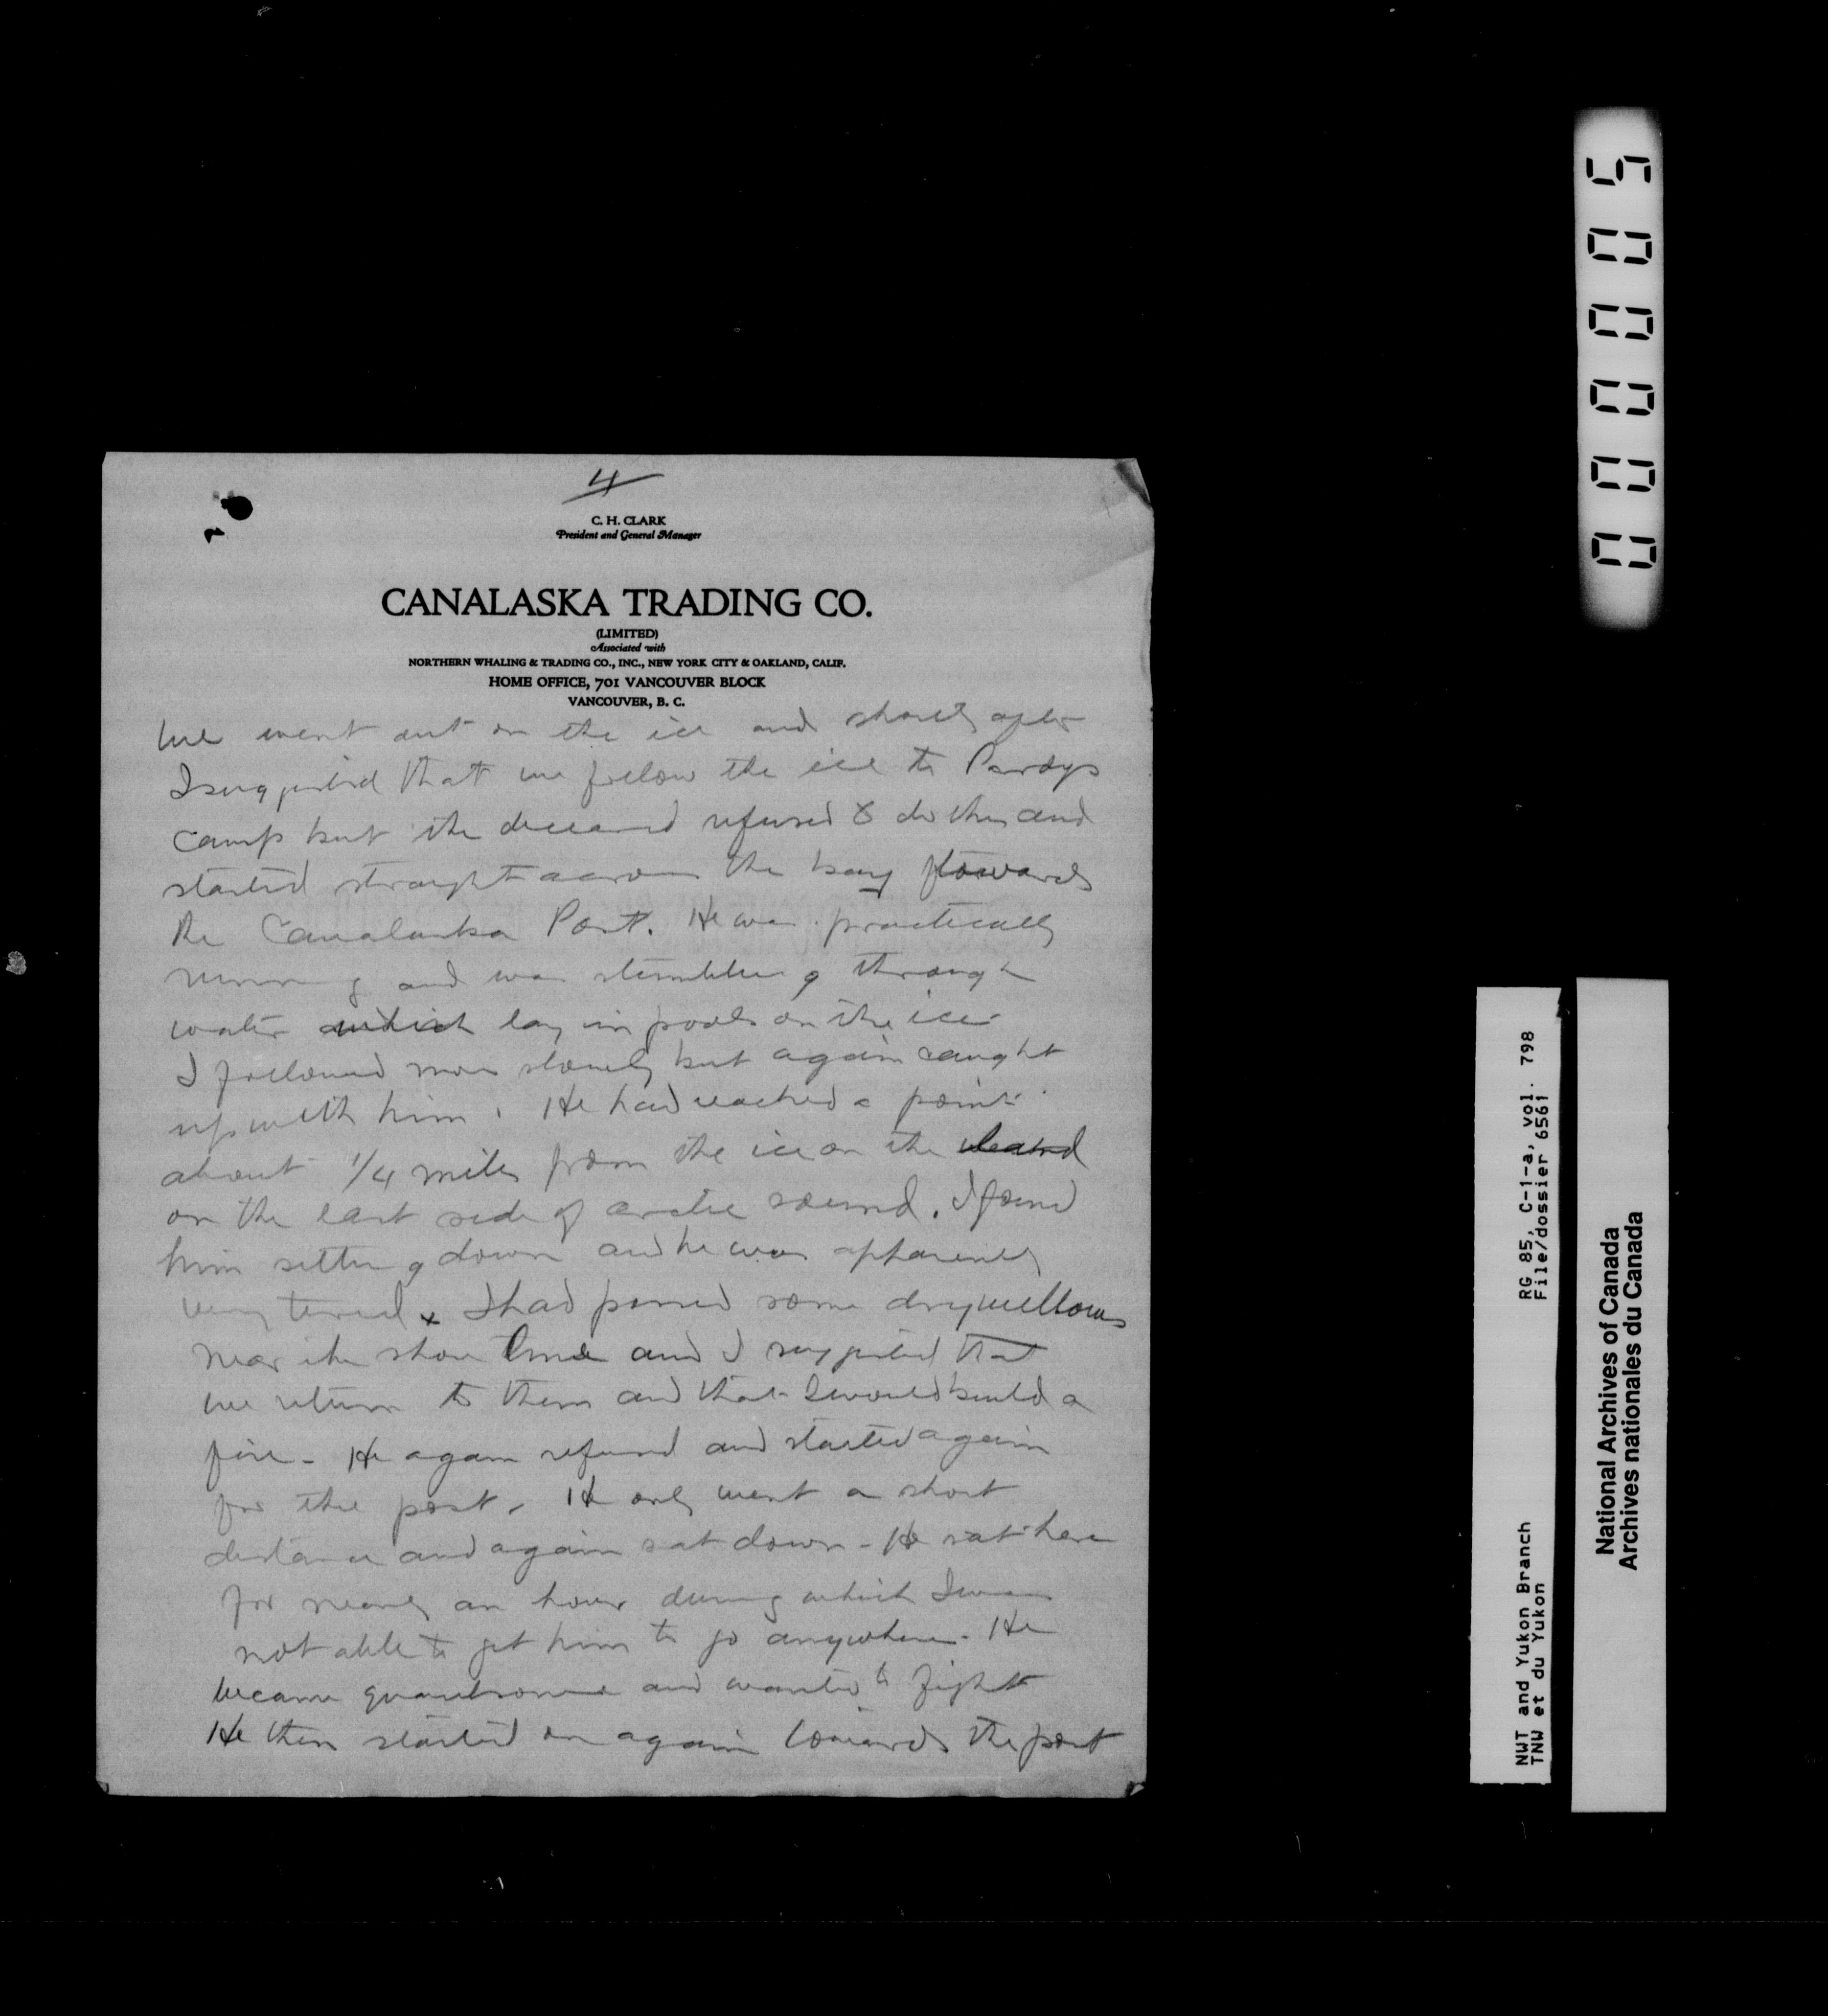 4
C. H. CLARK
President and General Manager
CANALASKA TRADING CO.
(LIMITED)
Associated with
NORTHERN WHALING & TRADING CO., INC., NEW YORK CITY & OAKLAND, CALIF.
HOME OFFICE, 701 VANCOUVER BLOCK
VANCOUVER, B. C.
We went out on the ice and shortly after
I suggested that we follow the ice to Pardys
camp but the deceased refused to do this and
started straight across the bay towards
the Canalaska Post. He was practically
running and was stumbling through
water which lay in pools on the ice
I followed more slowly but again caught
up with him. He had reached a point
about 1/4 mile from the ice on the
on the east side of arctic sound. I found
him sitting down and he was apparently
very tired. I had passed some dry willows
near the shore line and I suggested that
we return to them and that I would build a
fire - He again refused and started again
for the post. He only went a short
distance and again sat down - He sat here
for nearly an hour during which I was
not able to get him to go anywhere. He
became quarelsome and wanted to fight
He then started on again towards the post
000005
RG 85, C-1-a, vol. 798
File/dossier 6561
NWT and Yukon Branch
TNW et du Yukon
National Archives of Canada
Archives nationales du Canada